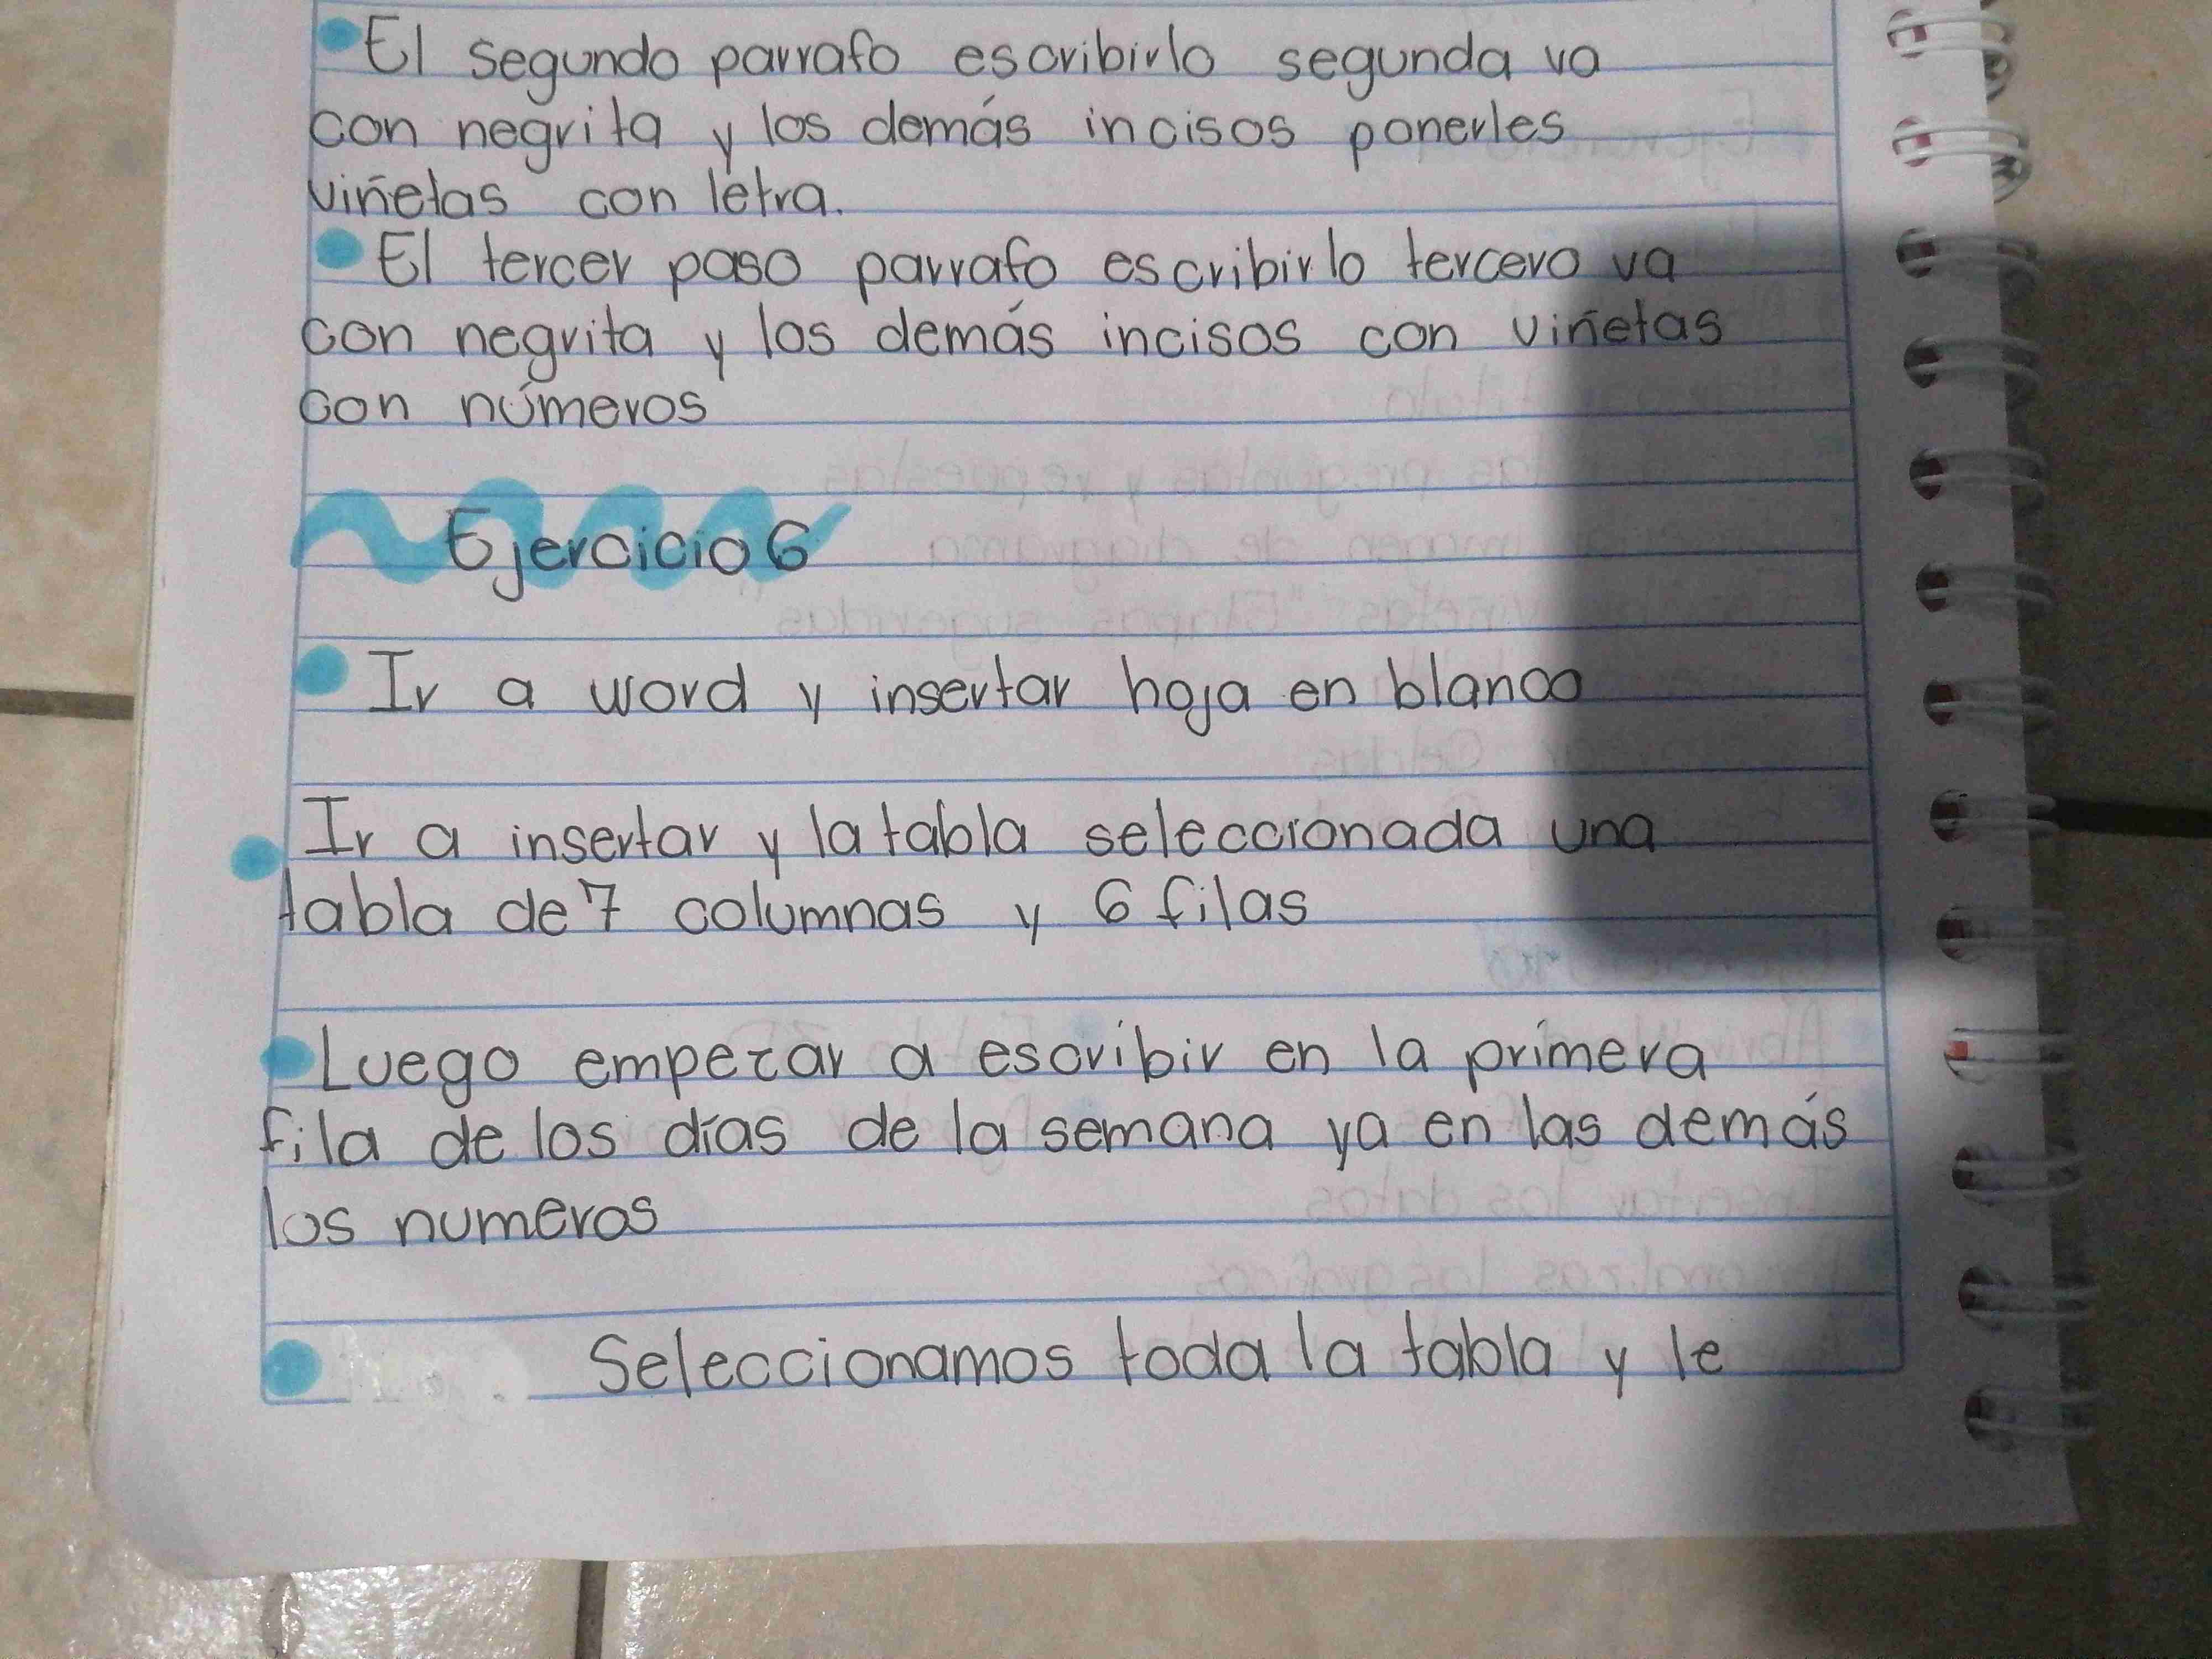 El segundo parrafo escribirlo segunda va
con negrita y los demás incisos ponerles
viñetas con letra.
El tercer paso parrafo escribirlo tercero va
con negrita y los demás incisos con viñetas
con números
Ejercicio 6
Ir a word y insertar hoja en blanco
Ir a insertar y la tabla seleccionada una
tabla de 7 columnas y 6 filas
Luego empezar a escribir en la primera
fila de los días de la semana ya en las demás
los numeros
Seleccionamos toda la tabla y le